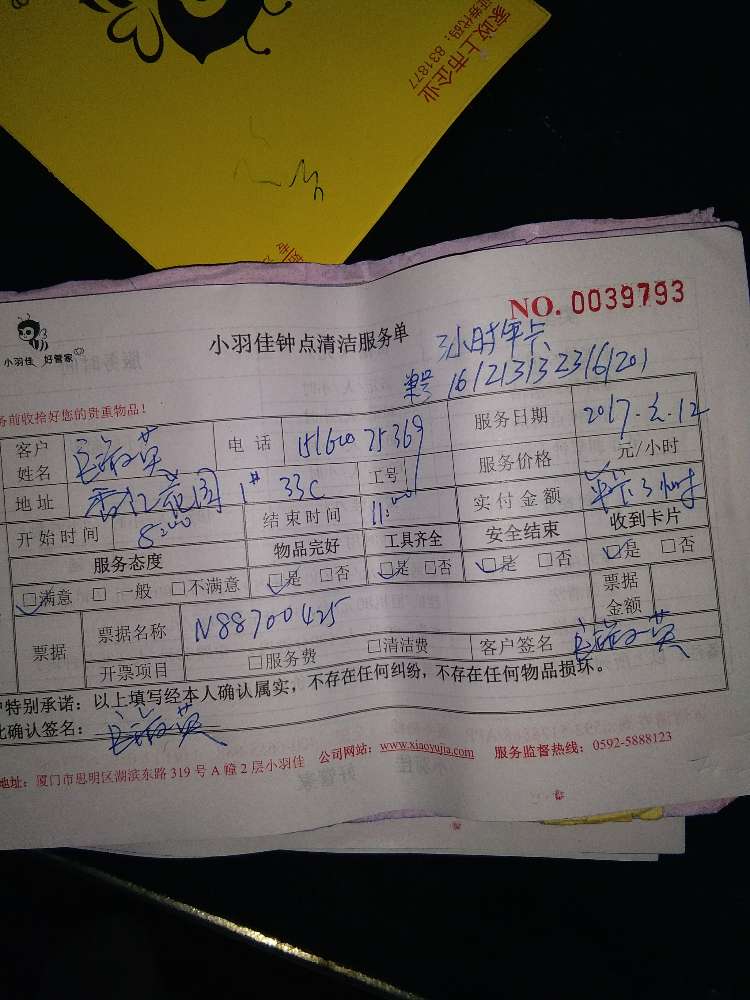 家政上市企业
证券代码：831877
NO. 0039793
小羽佳 好管家
小羽佳钟点清洁服务单
3小时单卡
单号 1612131323161201
务前收拾好您的贵重物品！
客户姓名 英 电话 15160025369 服务日期 2017.2.12
地址 香江花园 1# 33C 工号 服务价格 元/小时
开始时间 8:00 结束时间 11:00 实付金额 单卡3小时
服务态度 物品完好 工具齐全 安全结束 收到卡片
☑满意 □一般 □不满意 ☑是 □否 ☑是 □否 ☑是 □否 ☑是 □否
票据 票据名称 N88700425 票据金额
开票项目 □服务费 □清洁费 客户签名 英
户特别承诺：以上填写经本人确认属实，不存在任何纠纷，不存在任何物品损坏。
此确认签名： 英
地址：厦门市思明区湖滨东路 319 号 A 幢 2 层小羽佳 公司网站：www.xiaoyujia.com 服务监督热线：0592-5888123